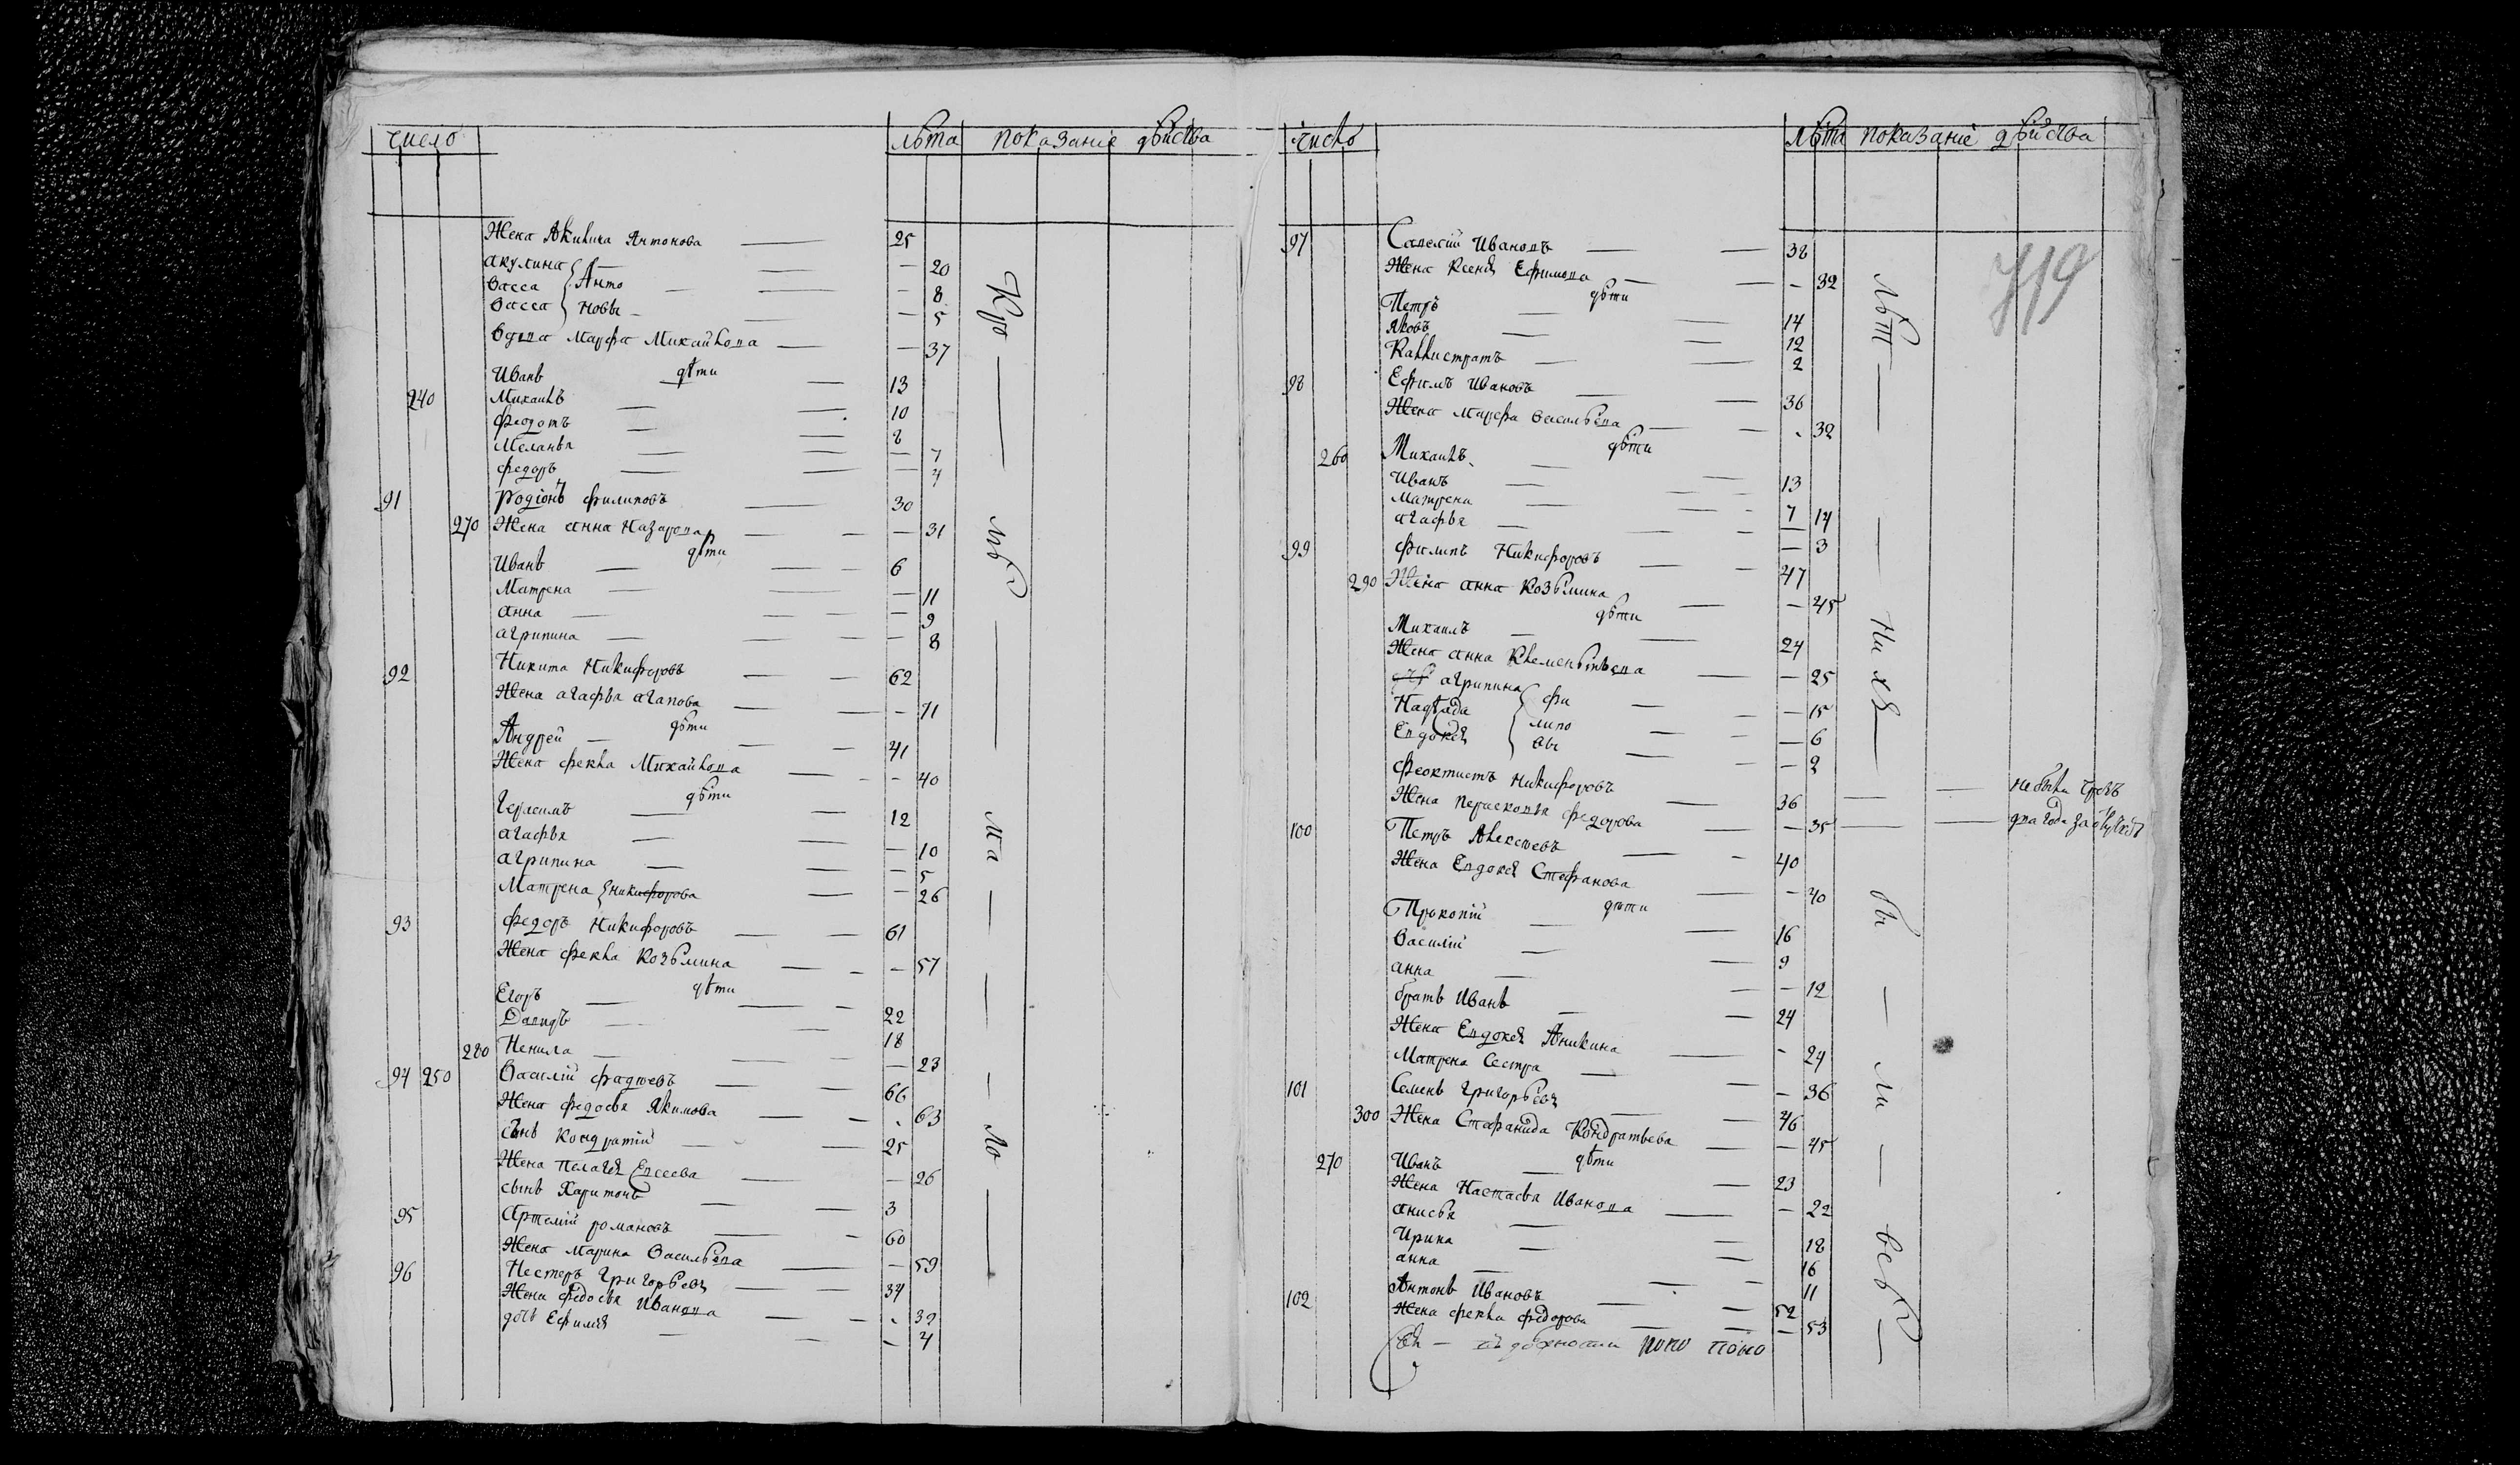 число лѣта показаніе дѣиства
Жена Акилина Антонова — 25
акулина — — 20
васса Анто — — 8
васса новы — — 5
вдова Марфа Михайлова — — 37
дѣти
Иванъ — 13
240 Михаилъ — — 10
Федотъ — — 8
Меланья — — — 7
федоръ — — — 4
91 Родіонъ филиповъ — 30
270 Жена анна Назарова — — — 31
дѣти
Иванъ — — — 6
Матрена — — — — 11
анна — — — — 9
агрипина — — — — 8
92 Никита Никифоровъ — — 62
Жена агафья агапова — — — 71
дѣти
Андрей — — — 41
Жена фекла Михайлова — — — 40
дѣти
Герасимъ — — 12
агафья — — — 10
агрипина — — — 5
Матрена никифорова — — 26
93 федоръ Никифоровъ — — 61
Жена фекла Козьмина — — — 57
дѣти
Егоръ — — — 22
Давидъ — — 18
280 Ненила — — — — 23
94 250 Василій фадѣевъ — — 66
Жена федосья Якимова — — 63
сынъ Кондратій — — 25
Жена Пелагея Евсеева — — 26
сынъ Харитонъ — — 3
95 Артемій романовъ — — 60
Жена Марина Васильева — — 59
96 Нестеръ Григорьевъ — — 34
Жена федосья Иванова — — 32
дочь Ефимія — — — 4
Кро — — лѣ — — ма — — ло — —
число лѣта показаніе дѣйства
719
97 Савелій Ивановъ — — 38
Жена Ксенія Ефимова — — — 32
дѣти
Петръ — — 14
Яковъ — — 12
Каллистратъ — — 2
98 Ефимъ Ивановъ — — 36
Жена Марфа Васильева — — 32
дѣти
260 Михаилъ — 13
Иванъ — — — 7
Матрена — — — — 14
агафья — — — — 3
99 филипъ Никифоровъ — — 47
290 Жена анна Козьмина — — — 45
дѣти
Михаилъ — — 24
Жена анна Клементьева — — 25
агрипина фи — — — 15
Надежда липо — — — 6
Евдокея вы — — — 2
Феоктистъ Никифоровъ — 36 — — не были чрезъ
Жена Парасковья федорова — — 35 — — два года за
100 Петръ Алексѣевъ — — 40
Жена Евдокея Стефанова — — 40
дѣти
Прокопій — — 16
Василій — — 9
анна — — — 12
братъ Иванъ — — 24
Жена Евдокея Аникина — — 24
Матрена Сестра — — — 36
101 Семенъ Григорьевъ — — 46
300 Жена Стефанида Кондратьева — — 45
дѣти
270 Иванъ — — 23
Жена Настасья Иванова — — 22
анисья — — 18
Ирина — — 16
анна — — — 11
102 Антонъ Ивановъ — — 52
Жена фекла федорова — — — 53
лѣт — — — нихъ — — бы — ли — всѣ —